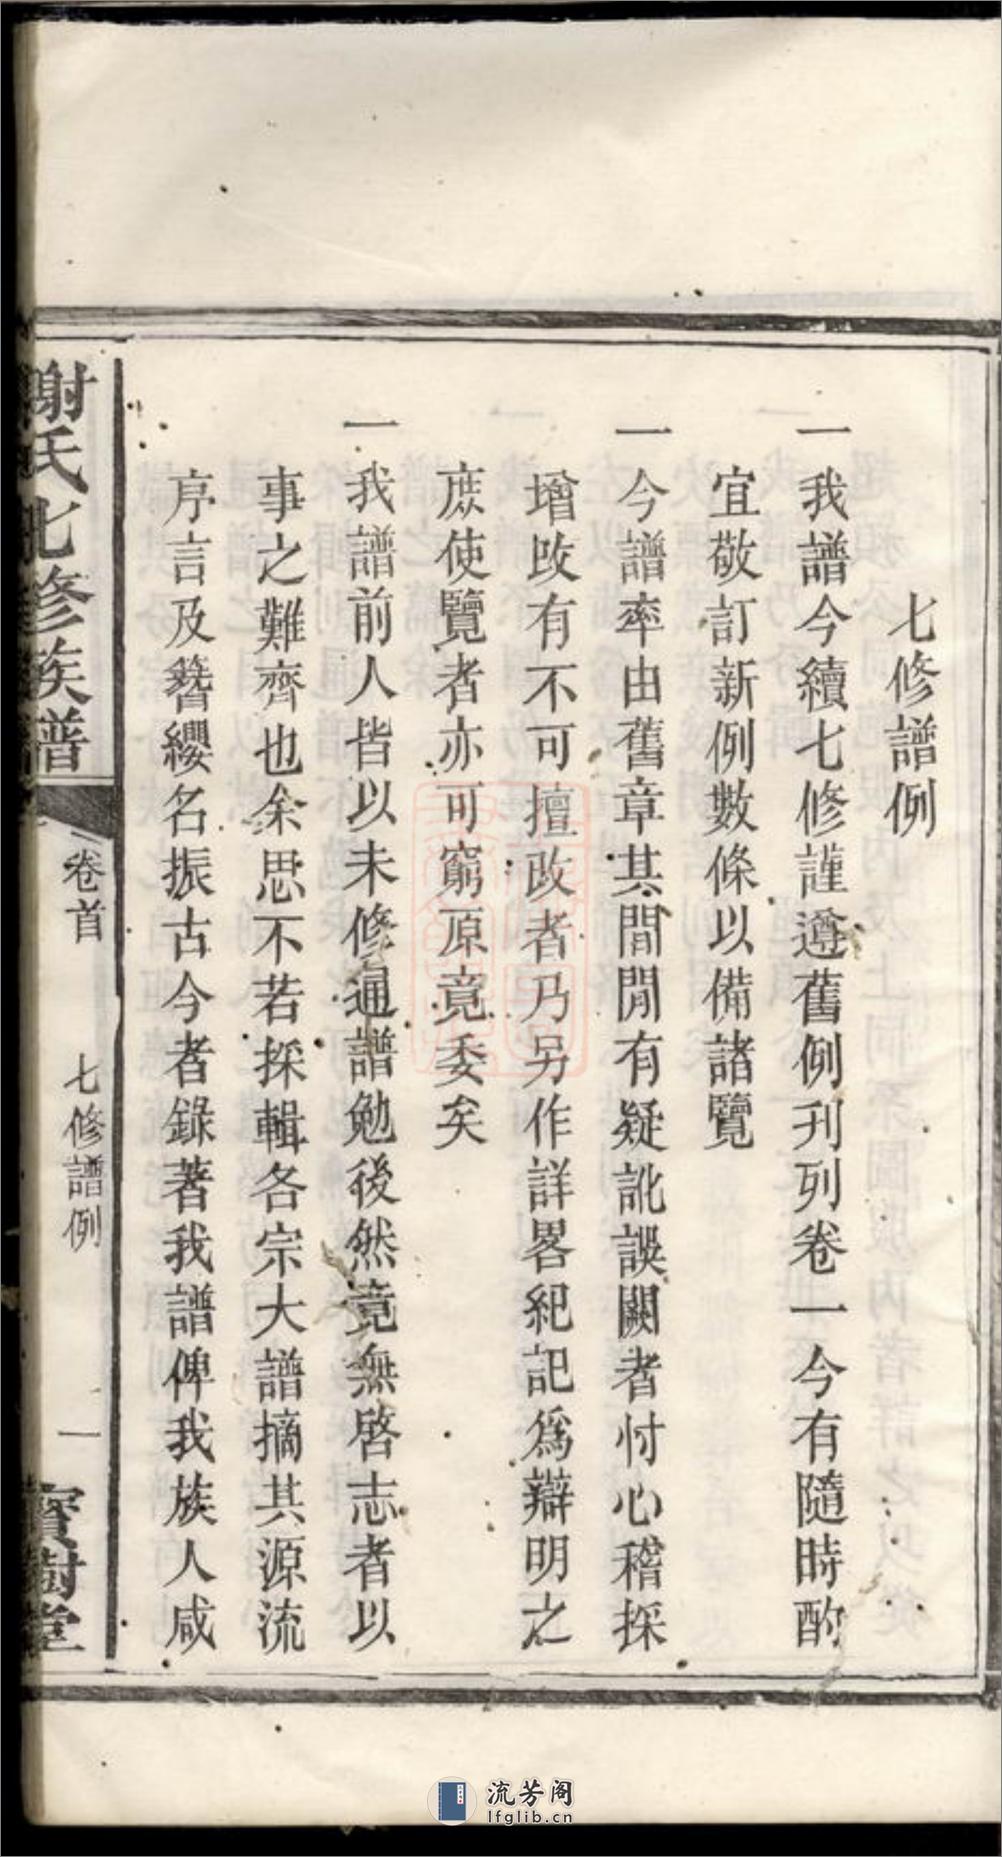 七修譜例
一我譜今續七修謹遵舊例刋列卷一今有隨時酌
宜敬訂新例數條以備諸覽
一今譜率由舊章其間閒有疑訛誤闕者忖心稽採
增改有不可擅改者乃另作詳畧紀記爲辯明之
庶使覽者亦可窮原竟委矣
一我譜前人皆以未修通譜勉後然竟無啓志者以
事之難齊也余思不若採輯各宗大譜摘其源流
序言及簪纓名振古今者錄著我譜俾我族人咸
謝氏七修族譜
卷首
七修譜例
一
寶樹堂
流芳阁
lfglib.cn